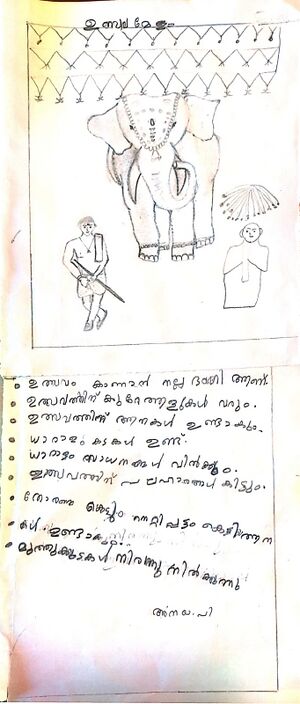 ഉത്സവമേളം
ഉത്സവം കാണാൻ നല്ല ഭംഗി ആണ്.
ഉത്സവത്തിന് കുറേആളുകൾ വരും.
ഉത്സവത്തിന് ആനകൾ ഉണ്ടാകും.
ധാരാളം കടകൾ ഉണ്ട്.
ധാരാളം സാധനങ്ങൾ വിൽക്കും.
ഉത്സവത്തിന് പലഹാരങ്ങൾ കിട്ടും.
തോരണം കെട്ടും നെറ്റിപ്പട്ടം കെട്ടിയആന
കൾ ഉണ്ടാകും.
മുത്തുക്കുടകൾ നിരന്നു നിൽക്കുന്നു
അനയ. പി